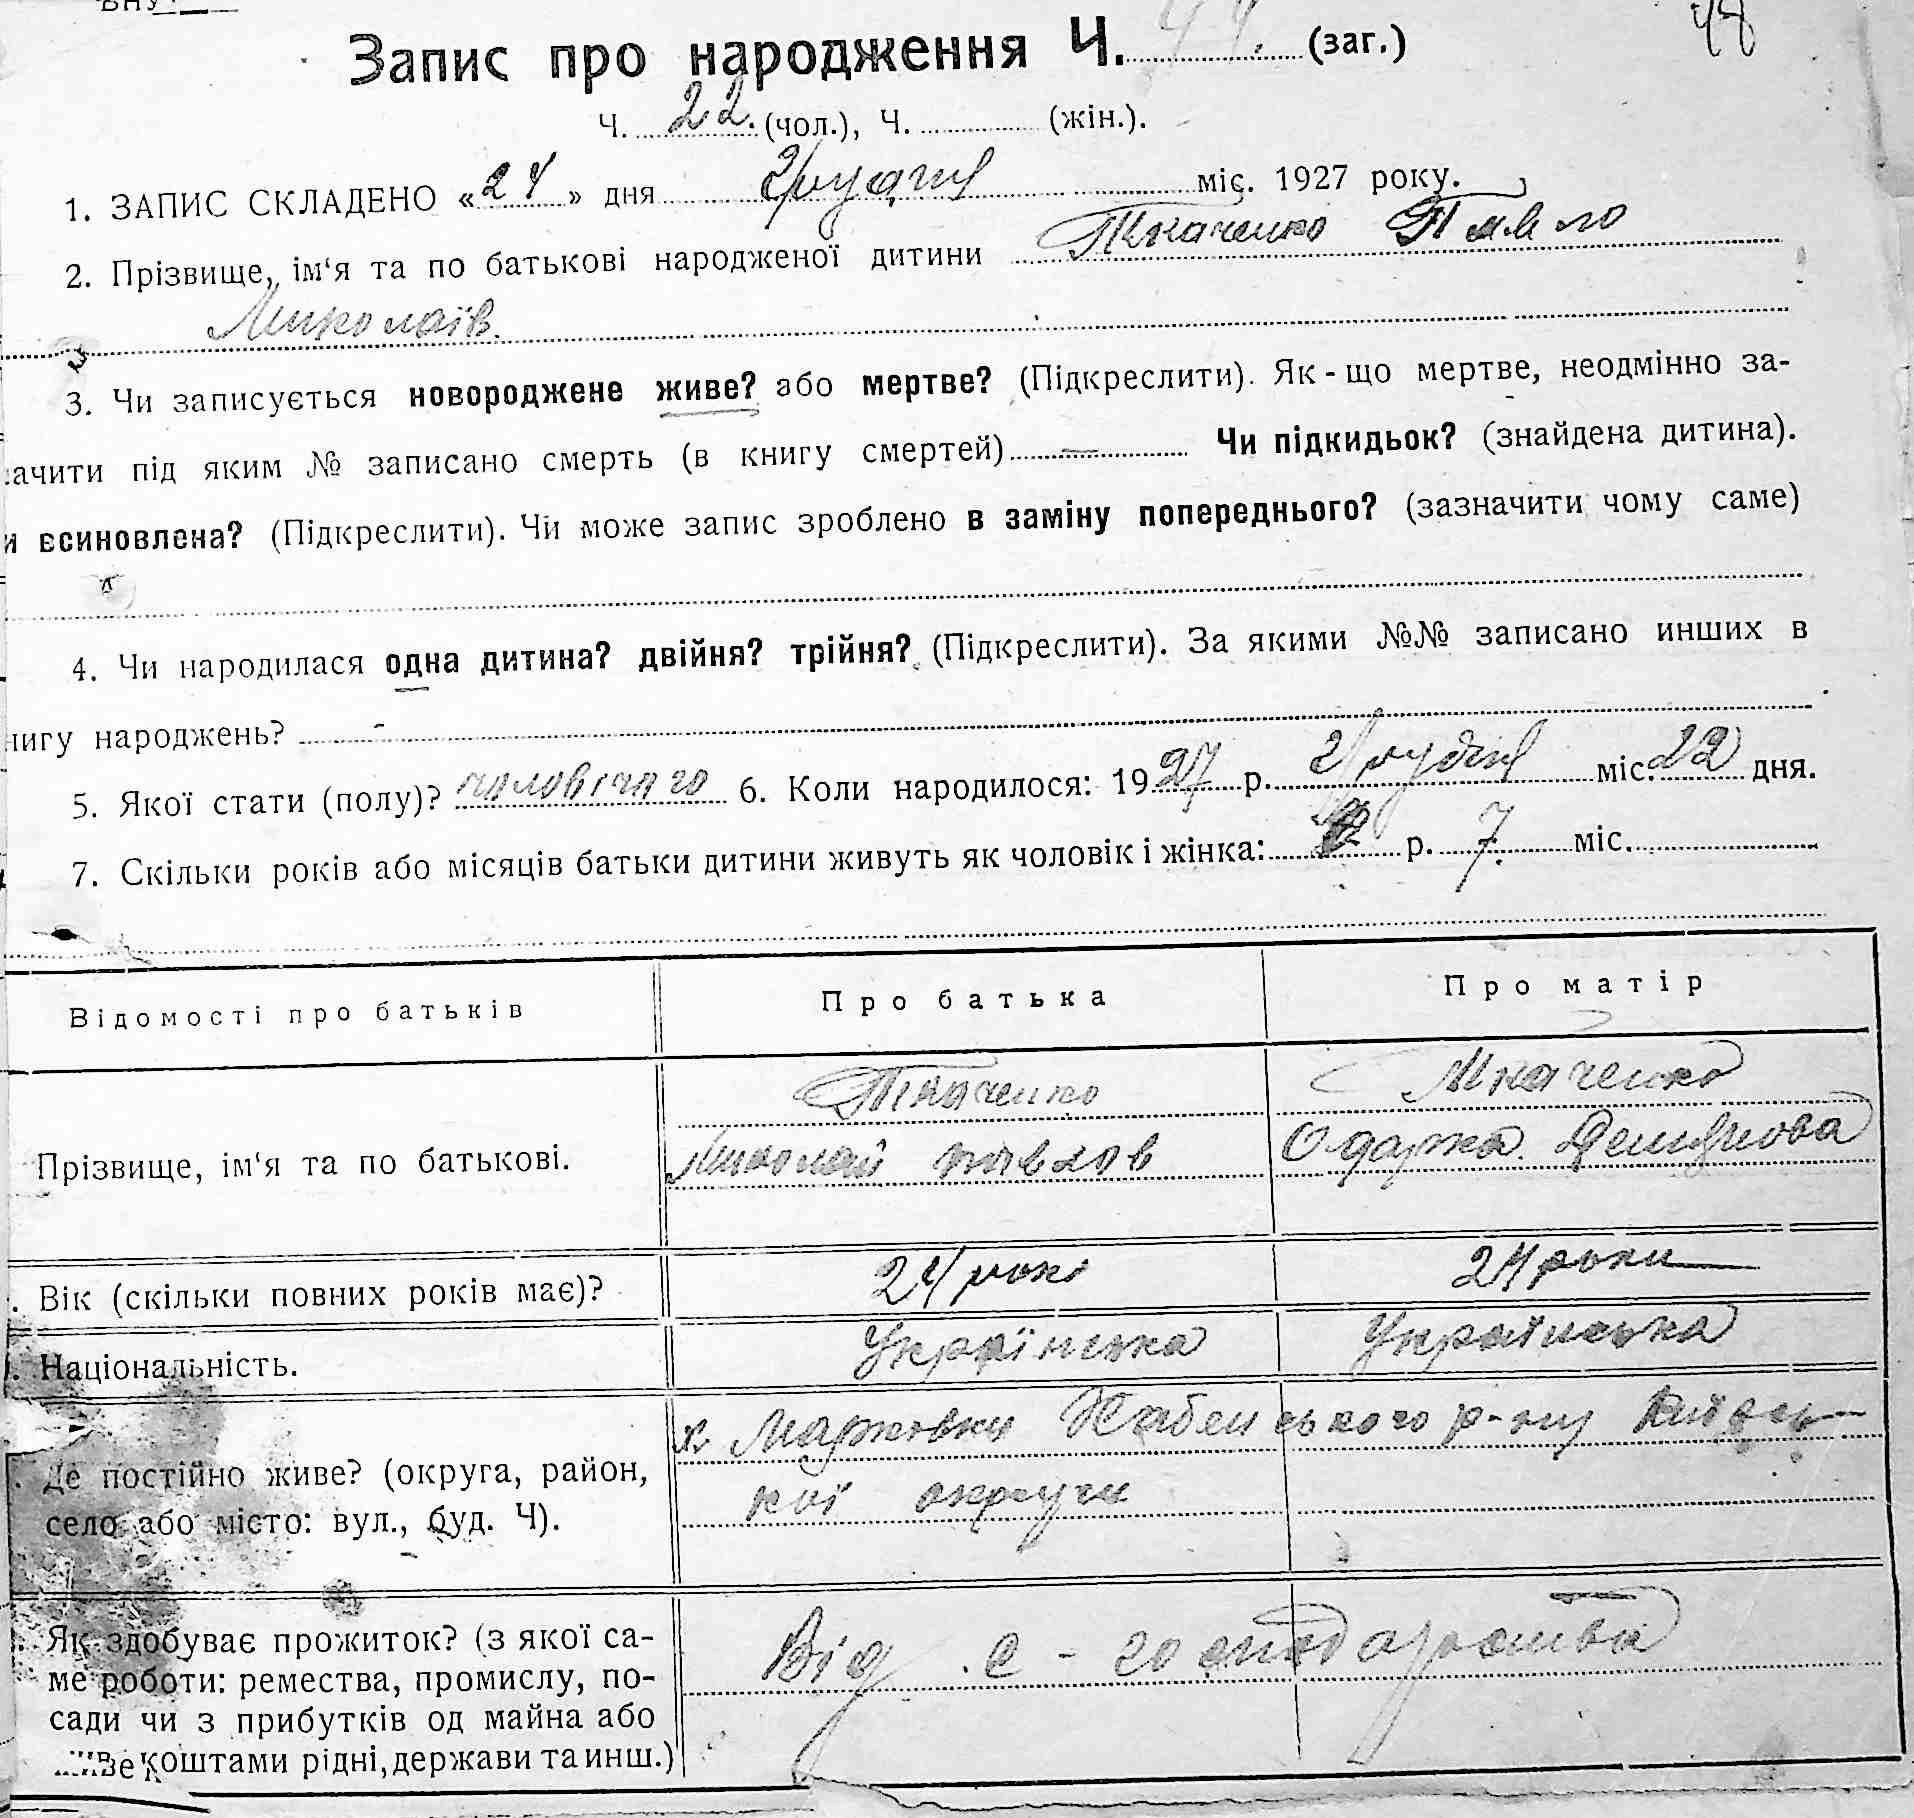 48
Запис про народження Ч. 44. (заг.)
Ч. 22. (чол.), Ч. (жін.).
1. ЗАПИС СКЛАДЕНО «24» дня Грудня міс. 1927 року.
2. Прізвище, ім‘я та по батькові народженої дитини Ткаченко Павло
Миколаїв.
3. Чи записується новороджене живе? або мертве? (Підкреслити). Як-що мертве, неодмінно за-
ачити під яким № записано смерть (в книгу смертей) — Чи підкидьок? (знайдена дитина).
и всиновлена? (Підкреслити). Чи може запис зроблено в заміну попереднього? (зазначити чому саме)
4. Чи народилася одна дитина? двійня? трійня? (Підкреслити). За якими №№ записано инших в
нигу народжень? -
5. Якої стати (полу)? чоловічаго 6. Коли народилося: 1927 р. Грудня міс. 22 дня.
7. Скільки років або місяців батьки дитини живуть як чоловік і жінка: р. 7. міс.
Відомості про батьків Про батька Про матір
Ткаченко Ткаченко
Прізвище, ім‘я та по батькові. Миколай павлов Одарка
Вік (скільки повних років має)? 24 рокі 24 роки
Національність. Українська Українська
х. Марковки Хабенського р-ну Київсь-
Де постійно живе? (округа, район, кої округи
село або місто: вул., буд. Ч).
Як здобуває прожиток? (з якої са- Від с-господарства
ме роботи: ремества, промислу, по-
сади чи з прибутків од майна або
живе коштами рідні, держави та инш.)